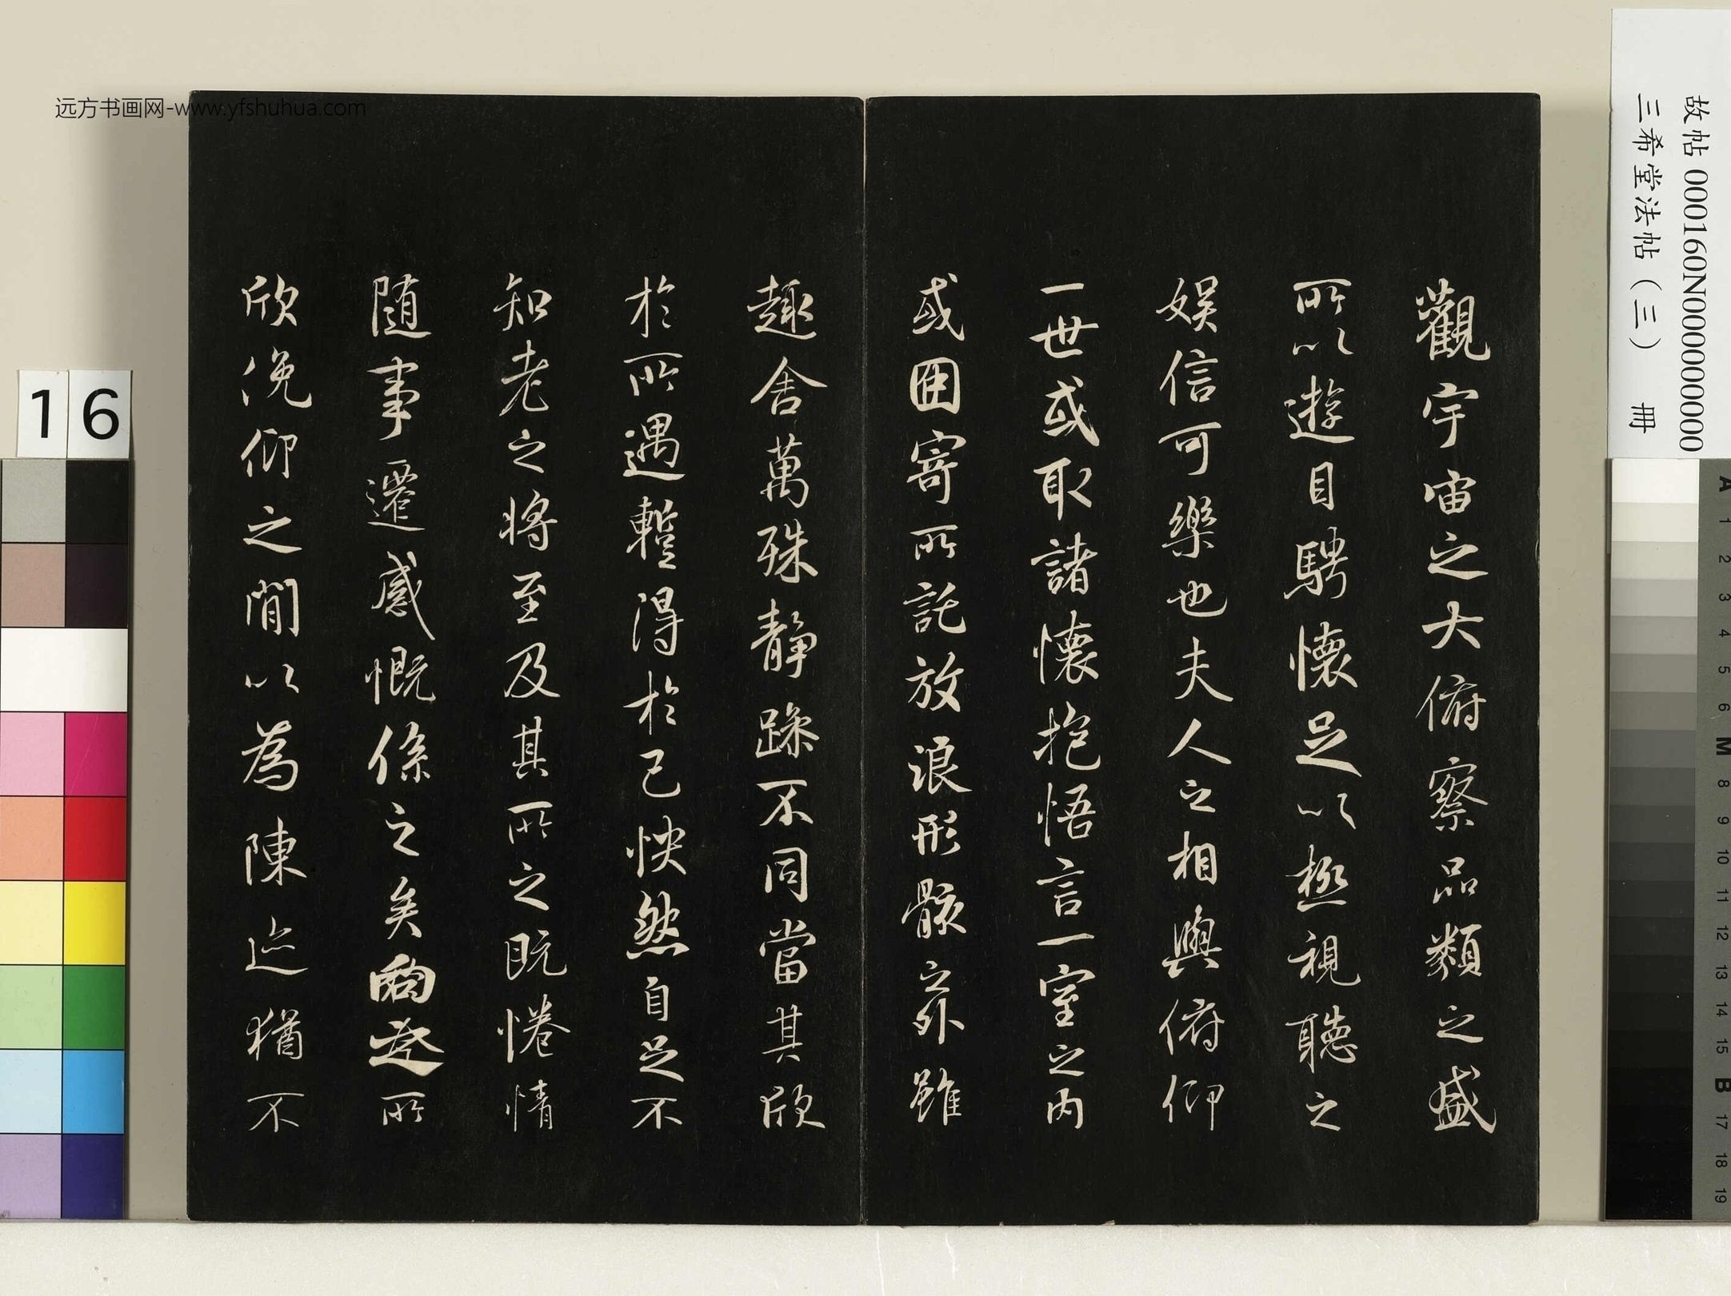 远方书画网-www.yfshuhua.com
故帖 000160N000000000
三希堂法帖（三） 冊
16
觀宇宙之大俯察品類之盛
所以遊目騁懷足以極視聽之
娛信可樂也夫人之相與俯仰
一世或取諸懷抱悟言一室之內
或因寄所託放浪形骸之外雖
趣舍萬殊靜躁不同當其欣
於所遇蹔得於己怏然自足不
知老之將至及其所之既惓情
隨事遷感慨係之矣向之所
欣俛仰之間以為陳迹猶不
A 1 2 3 4 5 6 M 8 9 10 11 12 13 14 15 B 17 18 19